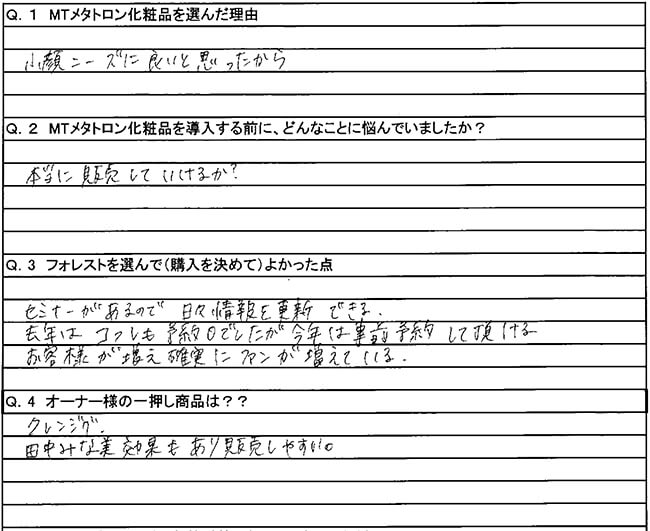 Q. 1 MTメタトロン化粧品を選んだ理由
小顔ニーズに良いと思ったから
Q. 2 MTメタトロン化粧品を導入する前に、どんなことに悩んでいましたか？
本当に販売していけるか?
Q. 3 フォレストを選んで(購入を決めて)よかった点
セミナーがあるので 日々情報を更新できる.
去年は コフレも予約0でしたが今年は事前予約して頂ける
お客様が増え確実にファンが増えている.
Q. 4 オーナー様の一押し商品は？？
クレンジング.
田中みな美効果もあり販売しやすい。